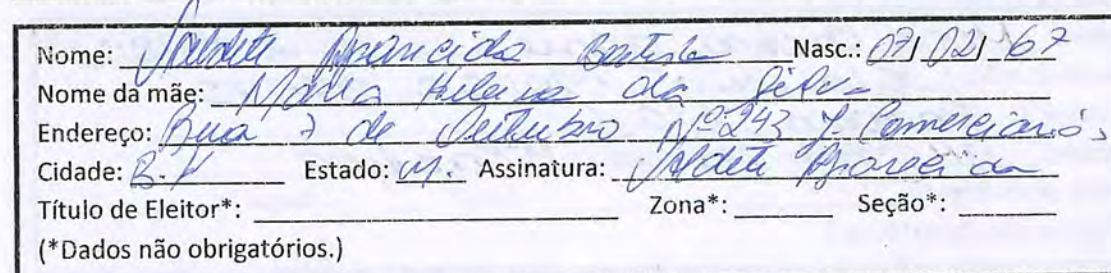 Nome: Valdete Aparecida Batista Nasc.: 07/02/67
Nome da mãe: Maria Helena da Silva
Endereço: Rua 7 de Setembro Nº 243 J. Comerciários
Cidade: B.H Estado: M. Assinatura: Valdete Aparecida
Título de Eleitor*: Zona*: Seção*:
(*Dados não obrigatórios.)